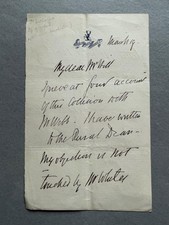 March 9
My dear Mr Hill
I grieve at your account
of this Collision with
Mr Webb. I have written
to the Rural Dean
My objection is not
touched by Mr White